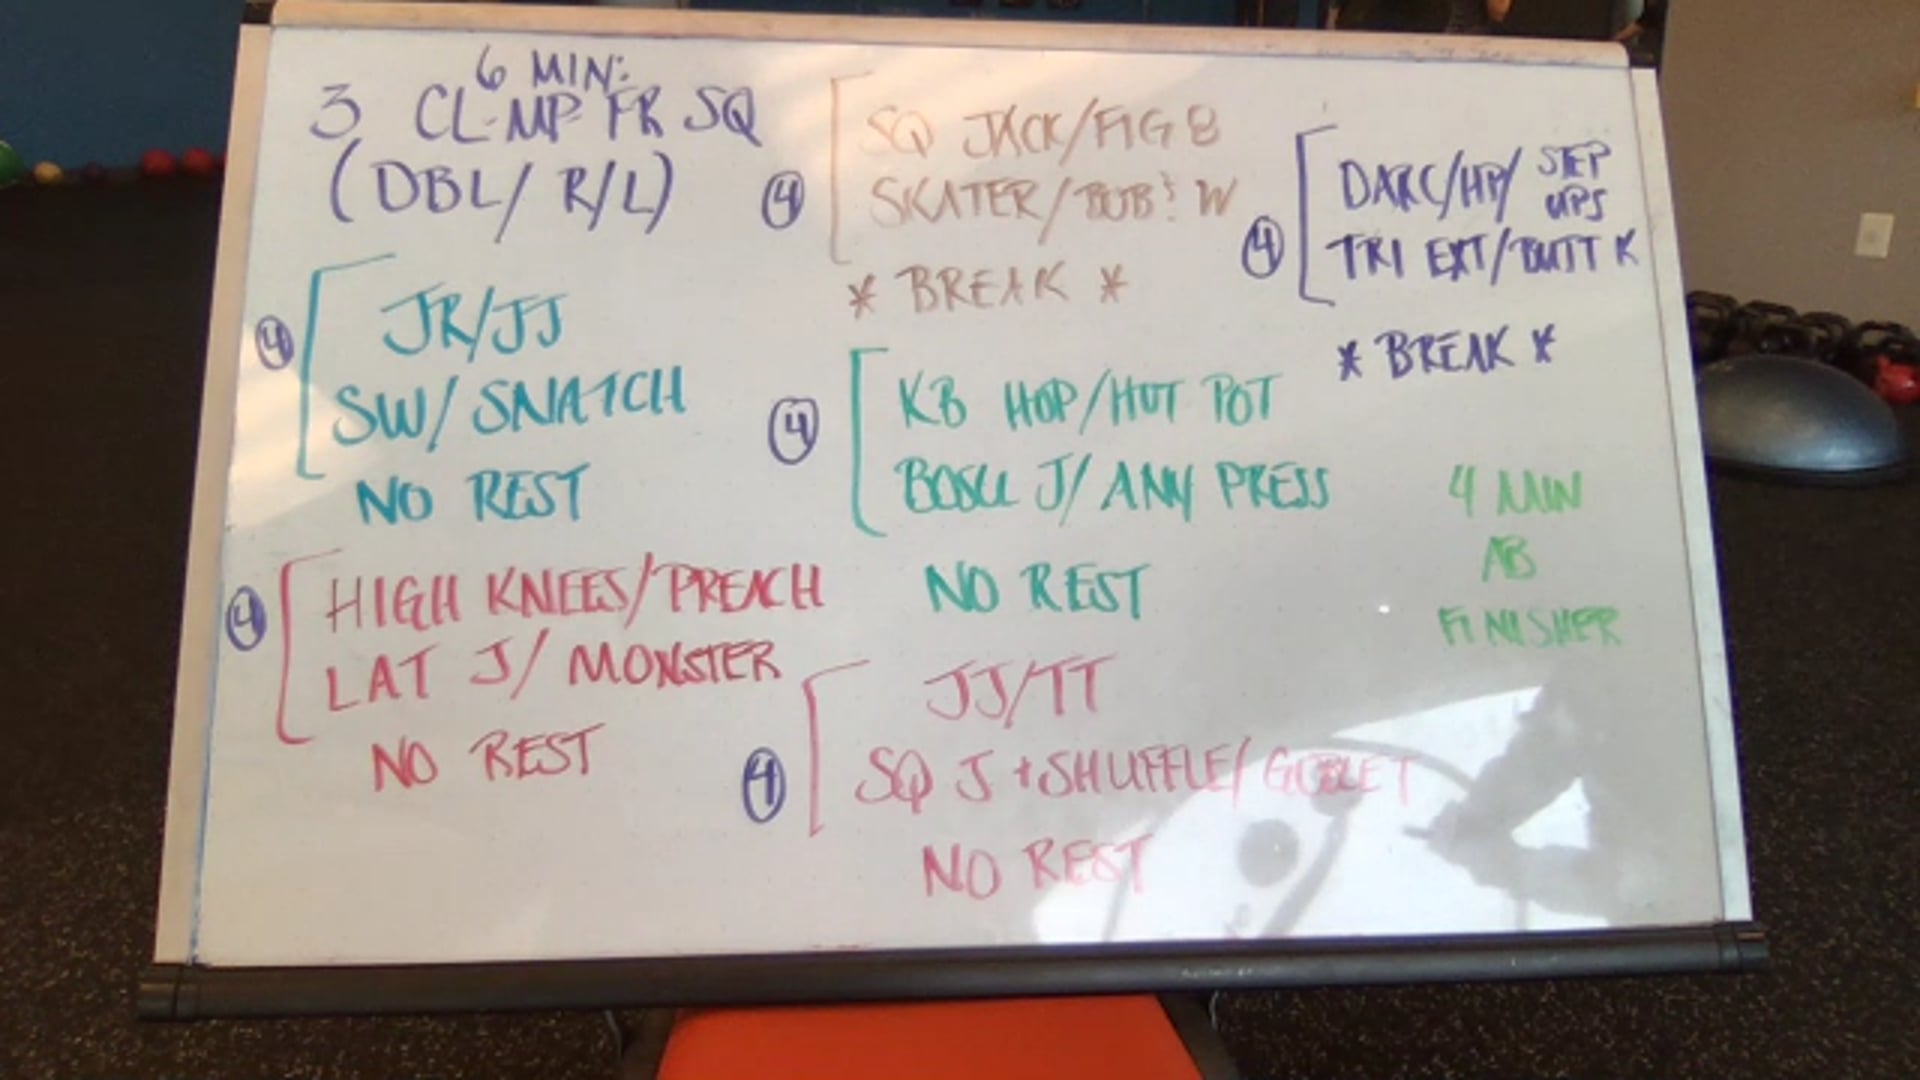 6 MIN:
3 CL-MP FR SQ
(DBL/ R/L)
④
JR/JJ
SW/ SNATCH
NO REST
④
HIGH KNEES/PREACH
LAT J/ MONSTER
NO REST
④
SQ JACK/FIG 8
SKATER/BOB? W
* BREAK *
④
KB HOP/HOT POT
BOSU J/ ANY PRESS
NO REST
④
JJ/TT
SQ J + SHUFFLE/ GOBLET
NO REST
④
DARC/HP/ STEP UPS
TRI EXT/BUTT K
* BREAK *
4 MIN
AB
FINISHER